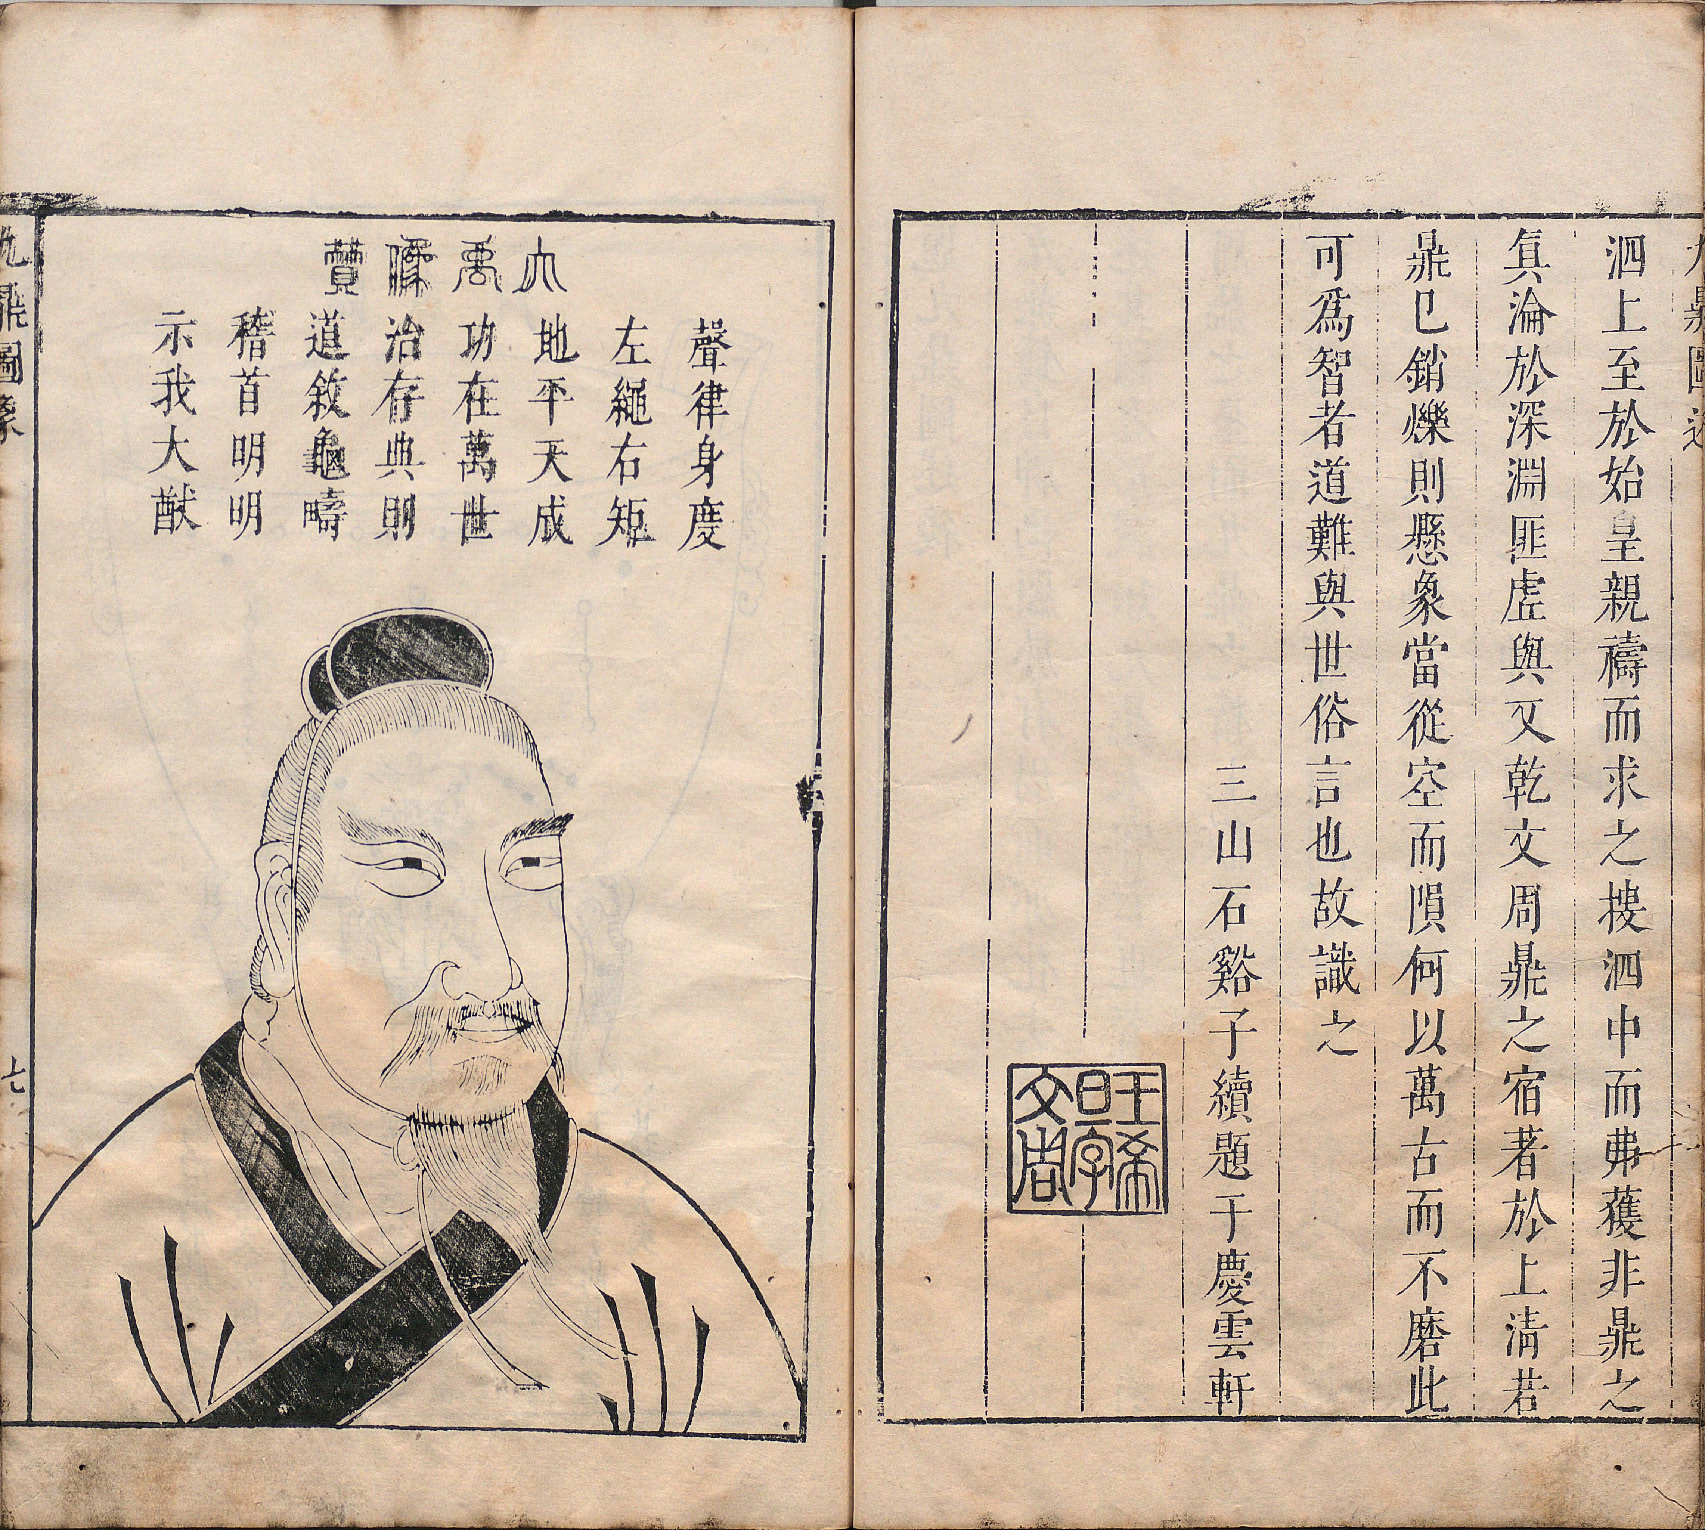 九鼎圖述
泗上至於始皇親禱而求之摟泗中而弗獲非鼎之
眞淪於深淵匪虛與又乾文周鼎之宿著於上清若
鼎巳銷爍則懸象當從空而隕何以萬古而不磨此
可爲智者道難與世俗言也故識之
三山石谿子續題于慶雲軒
王希
旦字
文周
大禹像贊
聲律身度
左繩右矩
地平天成
功在萬世
治存典則
道敘龜疇
稽首明明
示我大猷
九鼎圖像
七